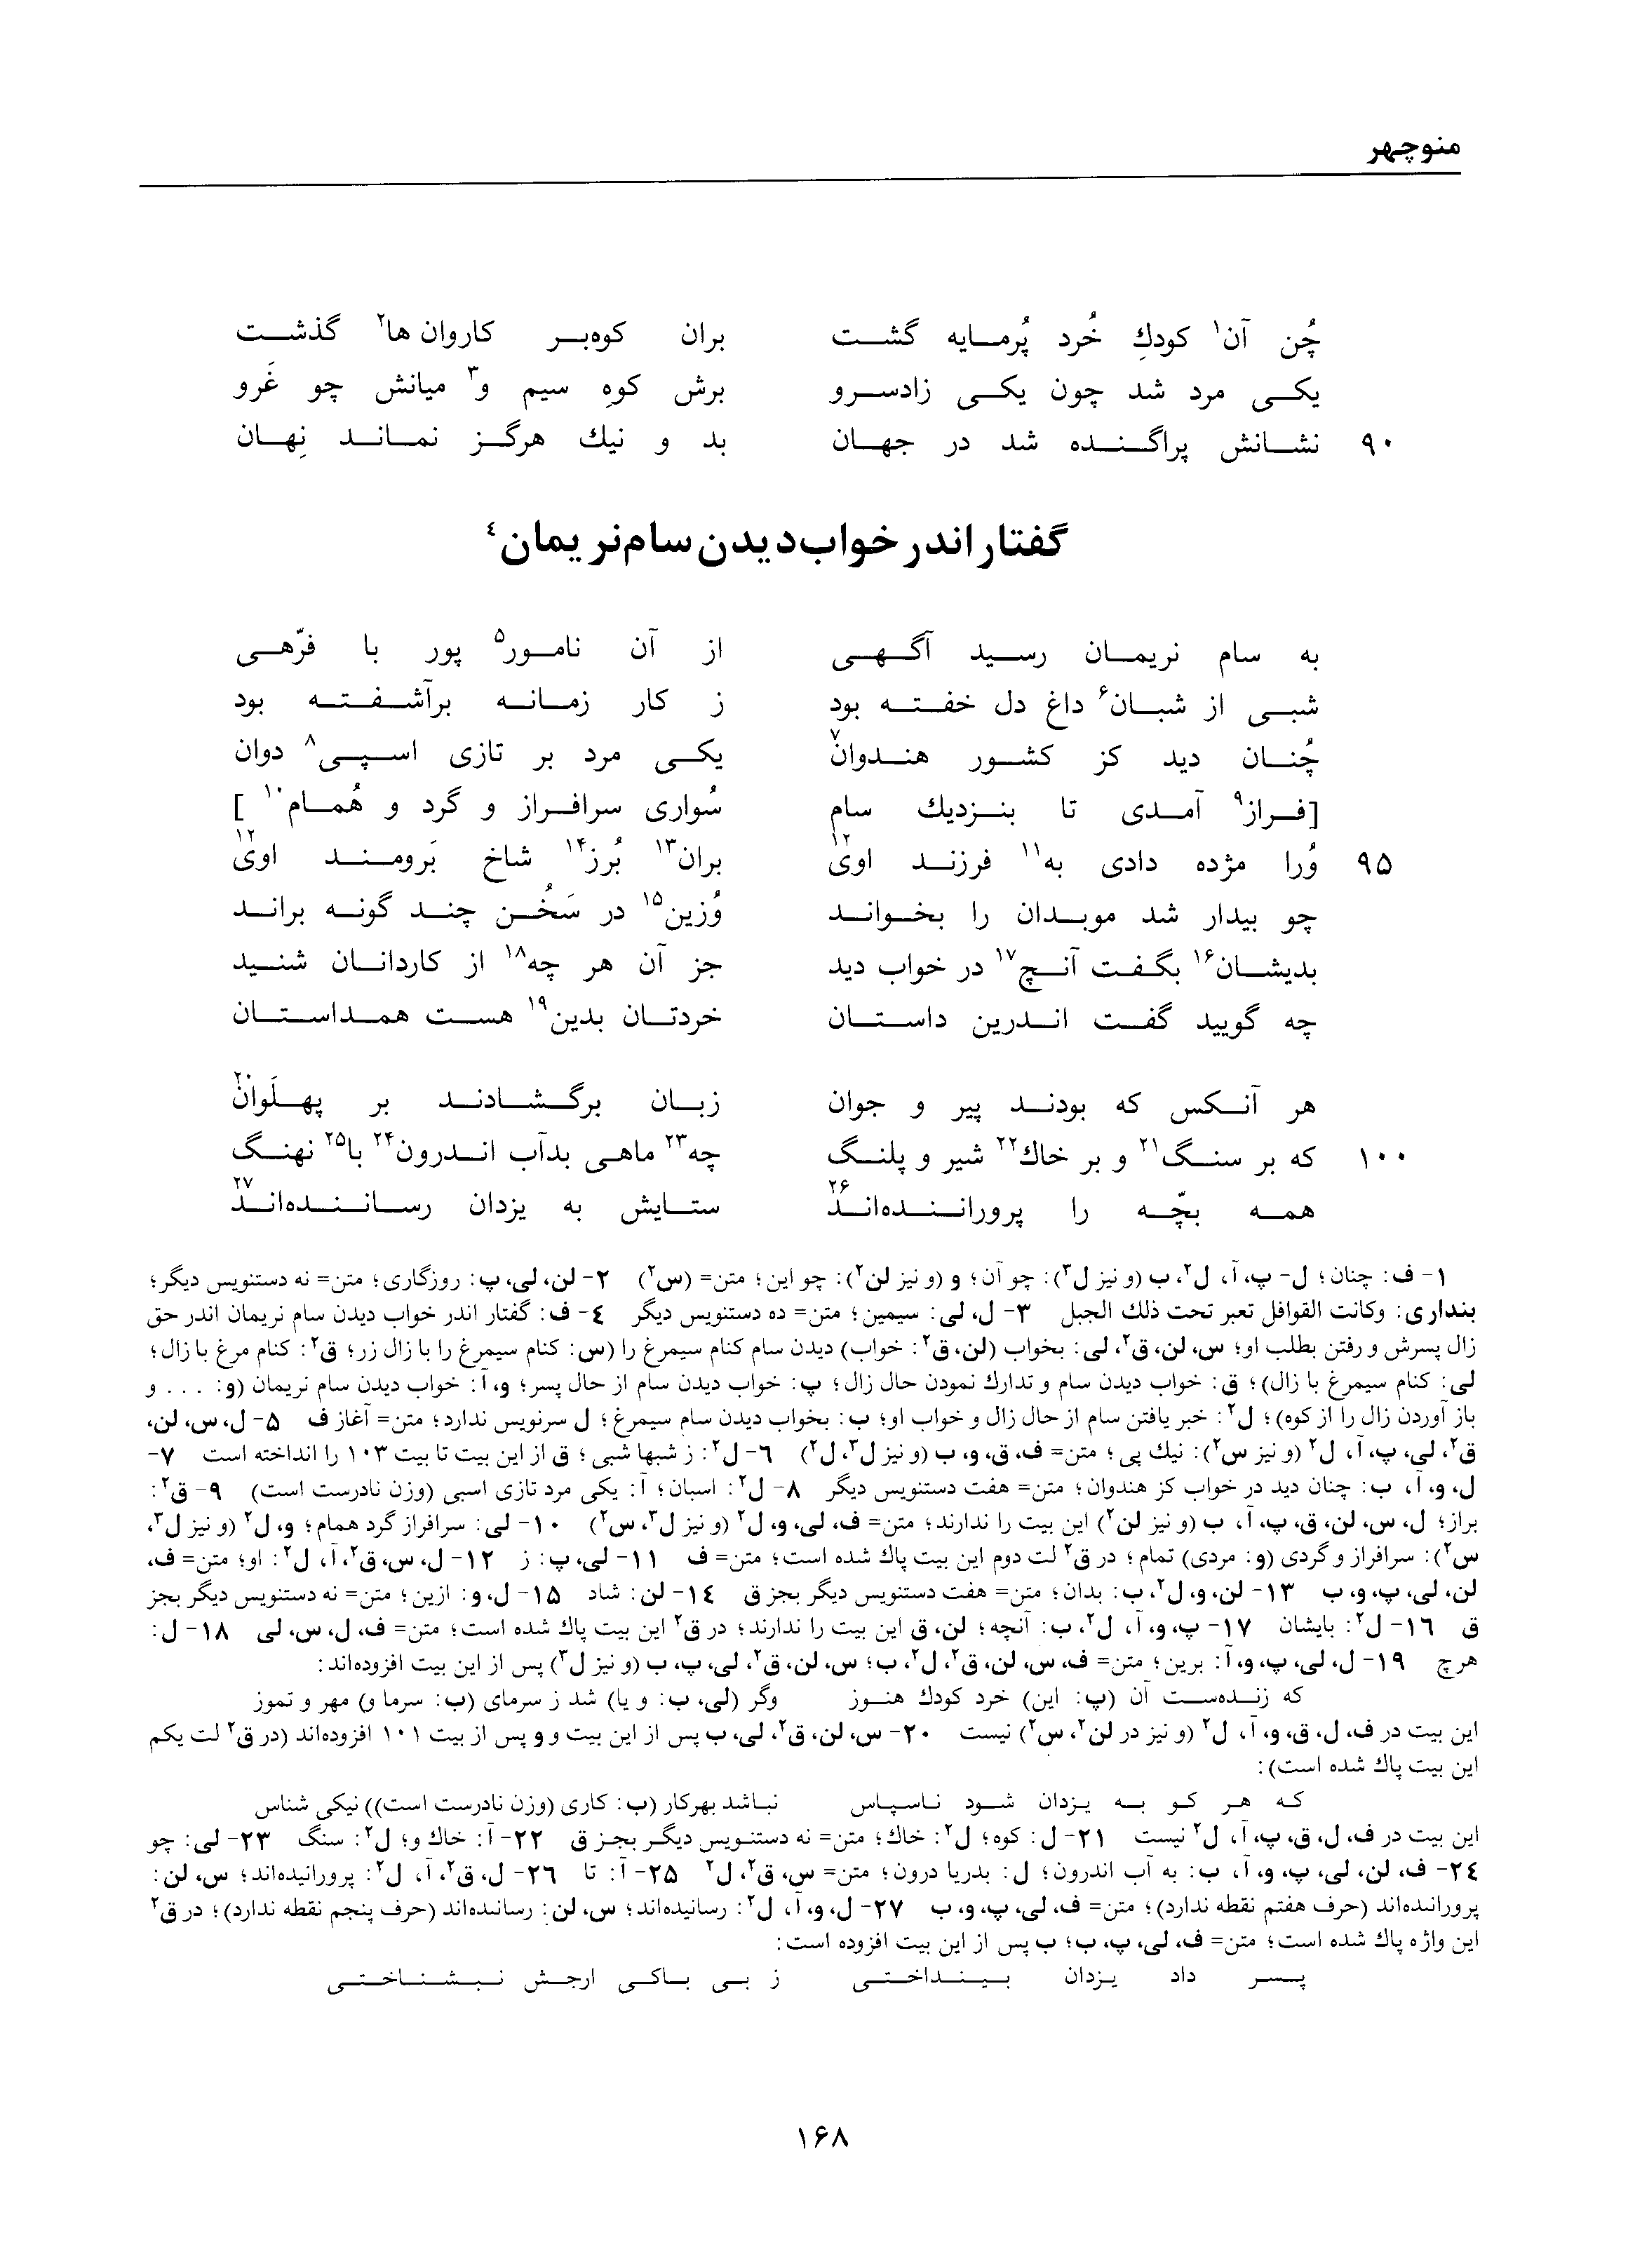 منوچهر
چُن آن۱ کودكِ خُرد پُرمـایه گشـت    بران کوه‌بـر کاروان ها۲ گذشـت
یکـی مرد شد چون یکـی زادسـرو    برش کوهِ سیم و۳ میانش چو غَرو
۹۰ نشـانش پراگـنـده شد در جهـان    بد و نیك هرگـز نمـانـد نِهـان
گفتار اندر خواب‌دیدن سام‌نریمان۴
به سام نریمـان رسـید آگـهـی    از آن نامـور۵ پور با فرّهـی
شبـی از شبـان۶ داغ دل خفتـه بود    ز کار زمـانـه برآشـفـتـه بود
چُنـان دید کز کشـور هنـدوان۷    یکـی مرد بر تازی اسـپـی۸ دوان
[فـراز۹ آمـدی تا بنـزدیك سام    سُواری سرافـراز و گرد و هُمـام۱۰ ]
۹۵ وُرا مژده دادی به۱۱ فرزنـد اوی۱۲    بران۱۳ بُرز۱۴ شاخ بَرومـنـد اوی۱۲
چو بیدار شد موبـدان را بخـوانـد    وُزین۱۵ در سَخُـن چنـد گونـه برانـد
بدیشـان۱۶ بگـفـت آنـچ۱۷ در خواب دید    جز آن هر چه۱۸ از کاردانـان شنـید
چه گویید گفـت انـدرین داسـتـان    خردتـان بدین۱۹ هسـت همـداسـتـان
هر آنـکس که بودنـد پیر و جوان    زبـان برگـشـادنـد بر پهـلَوان۲۰
۱۰۰ که بر سنـگ۲۱ و بر خاك۲۲ شیر و پلنـگ    چه۲۳ ماهـی بدآب انـدرون۲۴ با۲۵ نهنـگ
همـه بچّـه را پرورانـنـده‌انـد۲۶    ستـایش به یزدان رسـانـنـده‌انـد۲۷
۱- ف: چنان؛ ل- پ، آ، ل۲، ب (و نیز ل۳): چو آن؛ و (و نیز لن۲): چو این؛ متن= (س۲)   ۲- لن، لی، پ: روزگاری؛ متن= نه دستنویس دیگر؛
بنداری: وکانت القوافل تعبر تحت ذلك الجبل   ۳- ل، لی: سیمین؛ متن= ده دستنویس دیگر   ۴- ف: گفتار اندر خواب دیدن سام نریمان اندر حق
زال پسرش و رفتن بطلب او؛ س، لن، ق۲، لی: بخواب (لن، ق۲: خواب) دیدن سام کنام سیمرغ را (س: کنام سیمرغ را با زال زر؛ ق۲: کنام مرغ با زال؛
لی: کنام سیمرغ با زال)؛ ق: خواب دیدن سام و تدارك نمودن حال زال؛ پ: خواب دیدن سام از حال پسر؛ و، آ: خواب دیدن سام نریمان (و: . . . و
باز آوردن زال را از کوه)؛ ل۲: خبر یافتن سام از حال زال و خواب او؛ ب: بخواب دیدن سام سیمرغ؛ ل سرنویس ندارد؛ متن= آغاز ف   ۵- ل، س، لن،
ق۲، لی، پ، آ، ل۲ (و نیز س۲): نیك پی؛ متن= ف، ق، و، ب (و نیز ل۳، ل۲)   ۶- ل۲: ز شبها شبی؛ ق از این بیت تا بیت ۱۰۳ را انداخته است   ۷-
ل، و، آ، ب: چنان دید در خواب کز هندوان؛ متن= هفت دستنویس دیگر   ۸- ل۲: اسبان؛ آ: یکی مرد تازی اسبی (وزن نادرست است)   ۹- ق۲:
براز؛ ل، س، لن، ق، پ، آ، ب (و نیز لن۲) این بیت را ندارند؛ متن= ف، لی، و، ل۲ (و نیز ل۳، س۲)   ۱۰- لی: سرافراز گرد همام؛ و، ل۲ (و نیز ل۳،
س۲): سرافراز و گردی (و: مردی) تمام؛ در ق۲ لت دوم این بیت پاك شده است؛ متن= ف   ۱۱- لی، پ: ز   ۱۲- ل، س، ق۲، آ، ل۲: او؛ متن= ف،
لن، لی، پ، و، ب   ۱۳- لن، و، ل۲، ب: بدان؛ متن= هفت دستنویس دیگر بجز ق   ۱۴- لن: شاد   ۱۵- ل، و: ازین؛ متن= نه دستنویس دیگر بجز
ق   ۱۶- ل۲: بایشان   ۱۷- پ، و، آ، ل۲، ب: آنچه؛ لن، ق این بیت را ندارند؛ در ق۲ این بیت پاك شده است؛ متن= ف، ل، س، لی   ۱۸- ل:
هرچ   ۱۹- ل، لی، پ، و، آ: برین؛ متن= ف، س، لن، ق۲، ل۲، ب؛ س، لن، ق۲، لی، پ، ب (و نیز ل۳) پس از این بیت افزوده‌اند:
که زنـده‌سـت آن (پ: این) خرد کودك هنـوز    وگر (لی، ب: و یا) شد ز سرمای (ب: سرما و) مهر و تموز
این بیت در ف، ل، ق، و، آ، ل۲ (و نیز در لن۲، س۲) نیست   ۲۰- س، لن، ق۲، لی، ب پس از این بیت و و پس از بیت ۱۰۱ افزوده‌اند (در ق۲ لت یکم
این بیت پاك شده است):
کـه هـر کـو بـه یـزدان شـود نـاسپـاس    نبـاشد بهرکار (ب: کاری (وزن نادرست است)) نیکی شناس
این بیت در ف، ل، ق، پ، آ، ل۲ نیست   ۲۱- ل: کوه؛ ل۲: خاك؛ متن= نه دستنویس دیگر بجز ق   ۲۲- آ: خاك و؛ ل۲: سنگ   ۲۳- لی: چو
۲۴- ف، لن، لی، پ، و، آ، ب: به آب اندرون؛ ل: بدریا درون؛ متن= س، ق۲، ل۲   ۲۵- آ: تا   ۲۶- ل، ق۲، آ، ل۲: پرورانیده‌اند؛ س، لن:
پرورانده‌اند (حرف هفتم نقطه ندارد)؛ متن= ف، لی، پ، و، ب   ۲۷- ل، و، آ، ل۲: رسانیده‌اند؛ س، لن: رسانده‌اند (حرف پنجم نقطه ندارد)؛ در ق۲
این واژه پاك شده است؛ متن= ف، لی، پ، ب؛ ب پس از این بیت افزوده است:
پـسـر داد یـزدان بـیـنـداخـتـی    ز بـی بـاکـی ارجـش نـبـشـنـاخـتـی
۱۶۸